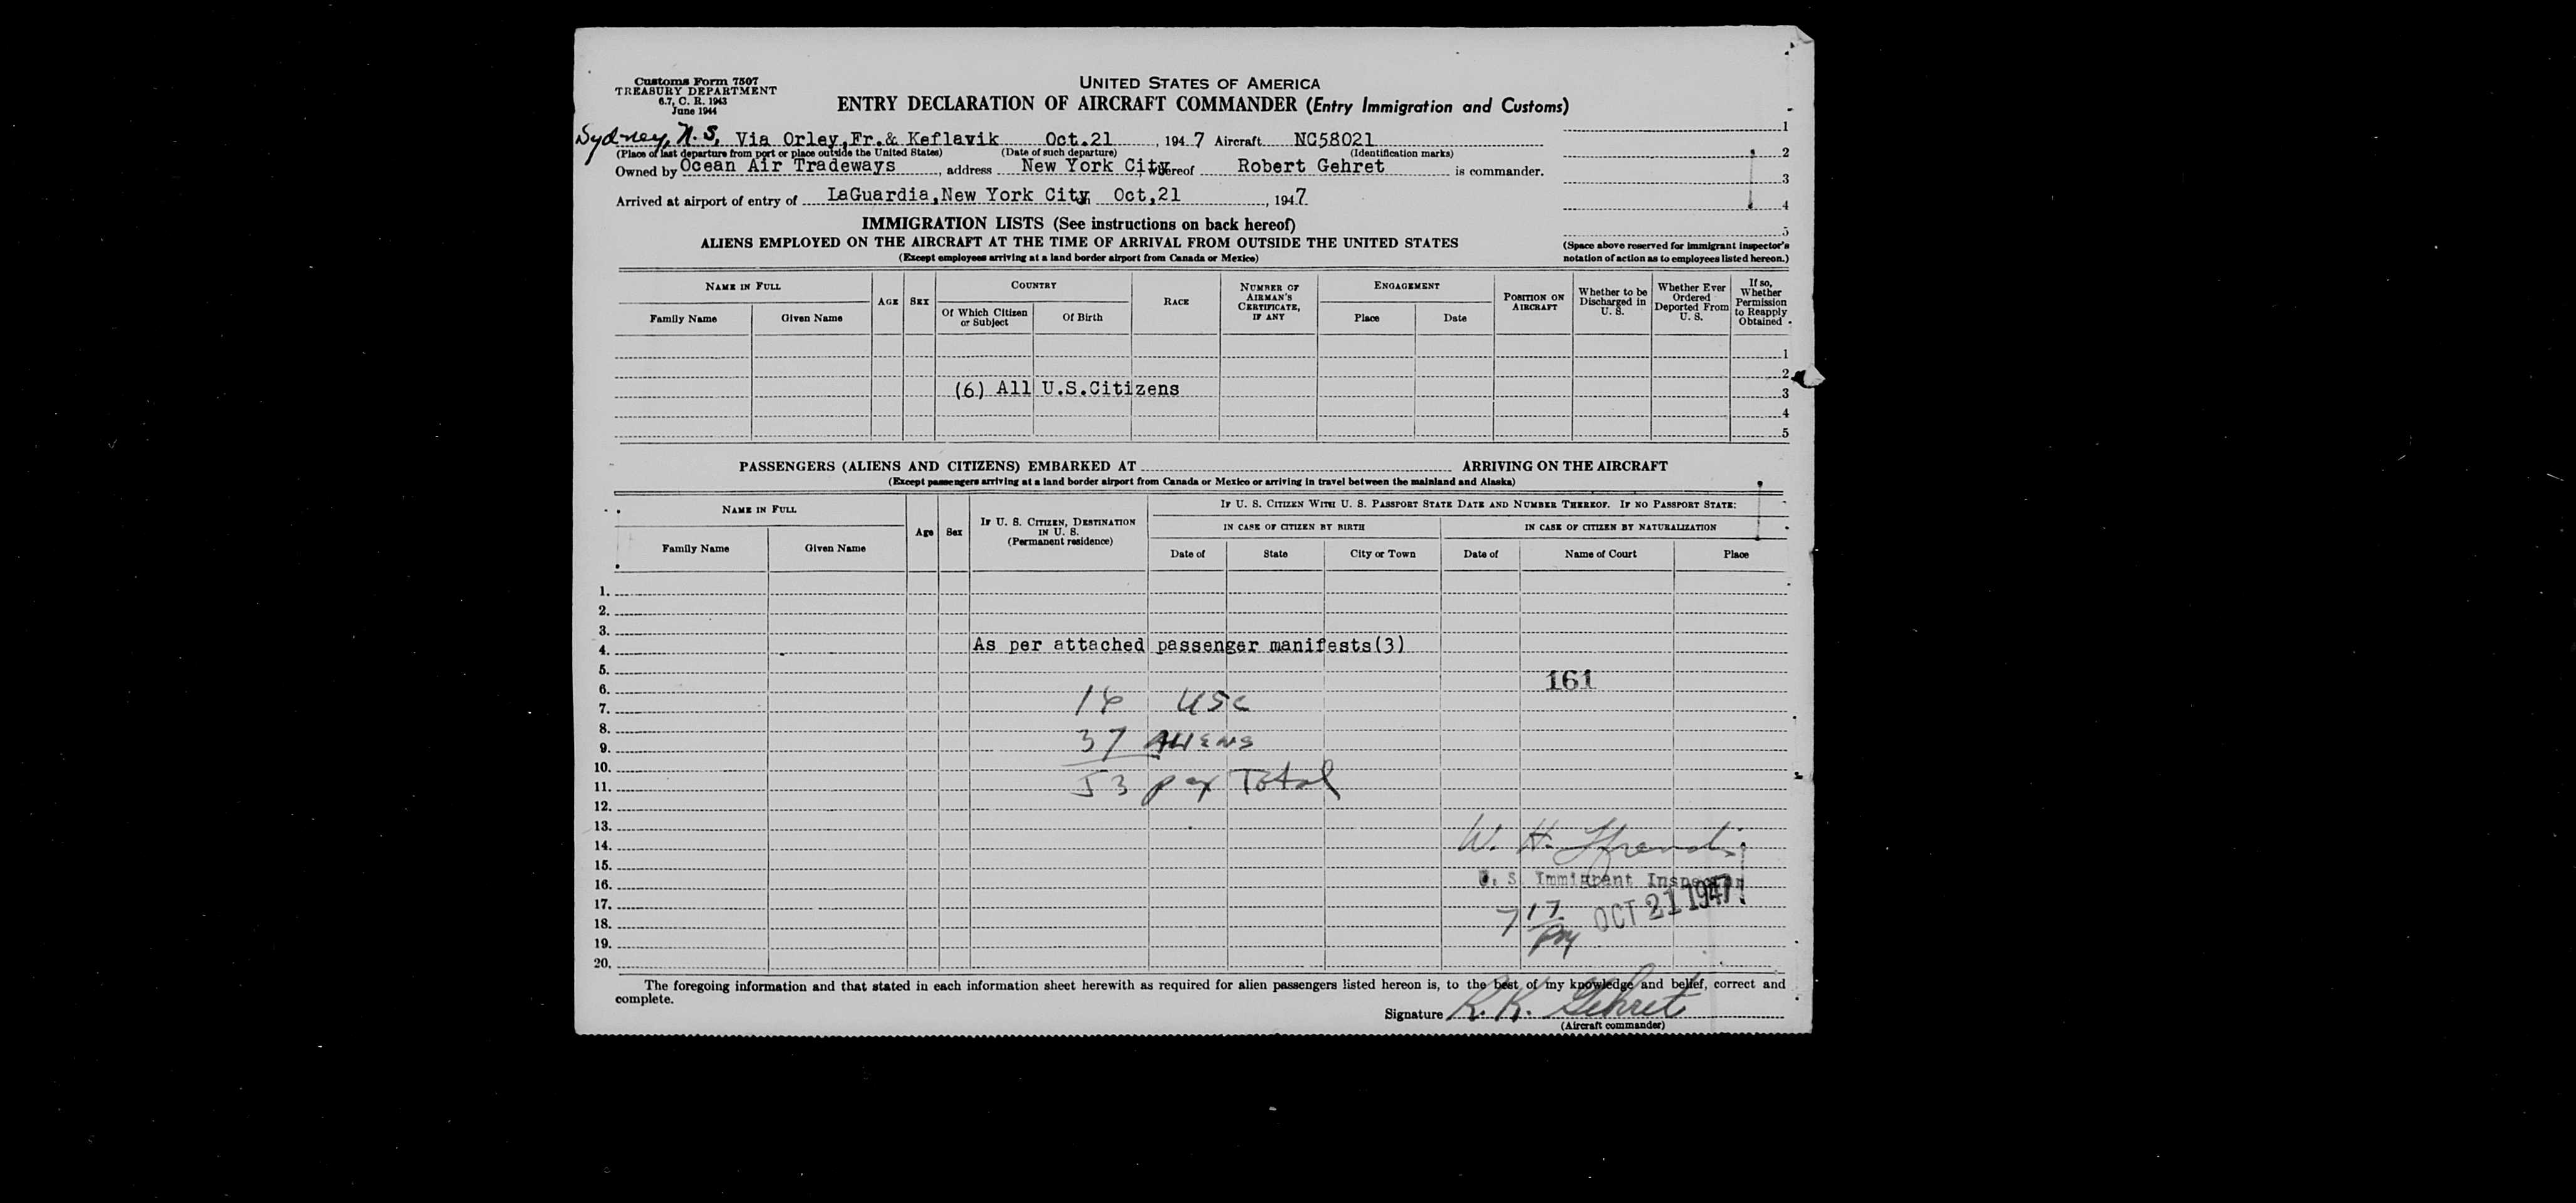 Customs Form 7507
TREASURY DEPARTMENT
6.7, C. R. 1943
June 1944
UNITED STATES OF AMERICA
ENTRY DECLARATION OF AIRCRAFT COMMANDER (Entry Immigration and Customs)
Sydney, N.S, Via Orley,Fr.& Keflavik Oct.21, 1947 Aircraft NC58021
(Place of last departure from port or place outside the United States) (Date of such departure) (Identification marks)
Owned by Ocean Air Tradeways, address New York City, whereof Robert Gehret is commander.
Arrived at airport of entry of LaGuardia,New York City, Oct,21, 1947
1
2
3
4
5
(Space above reserved for immigrant inspector's
notation of action as to employees listed hereon.)
IMMIGRATION LISTS (See instructions on back hereof)
ALIENS EMPLOYED ON THE AIRCRAFT AT THE TIME OF ARRIVAL FROM OUTSIDE THE UNITED STATES
(Except employees arriving at a land border airport from Canada or Mexico)
NAME IN FULL
Family Name Given Name
AGE SEX
COUNTRY
Of Which Citizen
or Subject
Of Birth
RACE
NUMBER OF
AIRMAN'S
CERTIFICATE,
IF ANY
ENGAGEMENT
Place Date
POSITION ON
AIRCRAFT
Whether to be
Discharged in
U. S.
Whether Ever
Ordered
Deported From
U. S.
If so,
Whether
Permission
to Reapply
Obtained
1
2
(6) All U.S.Citizens
3
4
5
PASSENGERS (ALIENS AND CITIZENS) EMBARKED AT ARRIVING ON THE AIRCRAFT
(Except passengers arriving at a land border airport from Canada or Mexico or arriving in travel between the mainland and Alaska)
NAME IN FULL
Family Name Given Name
Age Sex
IF U. S. CITIZEN, DESTINATION
IN U. S.
(Permanent residence)
IF U. S. CITIZEN WITH U. S. PASSPORT STATE DATE AND NUMBER THEREOF. IF NO PASSPORT STATE:
IN CASE OF CITIZEN BY BIRTH IN CASE OF CITIZEN BY NATURALIZATION
Date of State City or Town Date of Name of Court Place
1.
2.
3.
4. As per attached passenger manifests(3)
5.
6. 161
7. 16 USC
8.
9. 37 ALIENS
10.
11. 53 pax Total
12.
13.
14. W. H.
15.
16. U. S. Immigrant Inspector
17. OCT 21 1947
18. 7 17 PM
19.
20.
The foregoing information and that stated in each information sheet herewith as required for alien passengers listed hereon is, to the best of my knowledge and belief, correct and
complete.
Signature R.K. Gehret
(Aircraft commander)